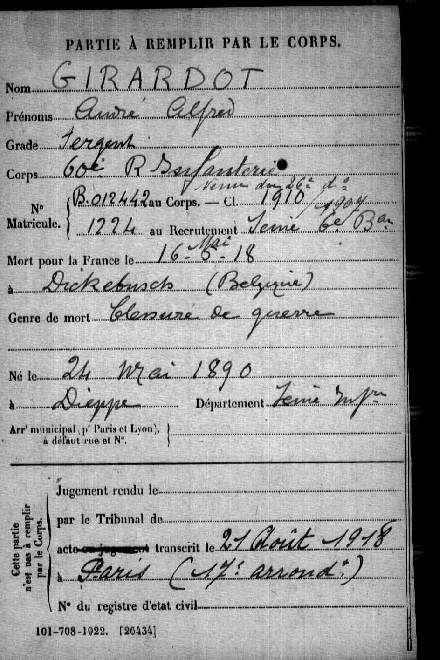 PARTIE À REMPLIR PAR LE CORPS.
Nom GIRARDOT
Prénoms André Alfred
Grade Sergent
Corps 60è R Infanterie
venu du 26e do
N° Matricule. { B.012442 au Corps. — Cl. 1910
1224 au Recrutement Seine 6e Bau
Mort pour la France le 16 - Mai - 18
à Dickebusch (Belgique)
Genre de mort blessure de guerre
Né le 24 mai 1890
à Dieppe Département Seine Infre
Arrt municipal (pr Paris et Lyon),
à défaut rue et N°.
Cette partie n'est pas à remplir par le Corps.
Jugement rendu le
par le Tribunal de
acte ou jugement transcrit le 21 Août 1918
à Paris (17e arrondt)
N° du registre d'état civil
101-708-1922. [26434]